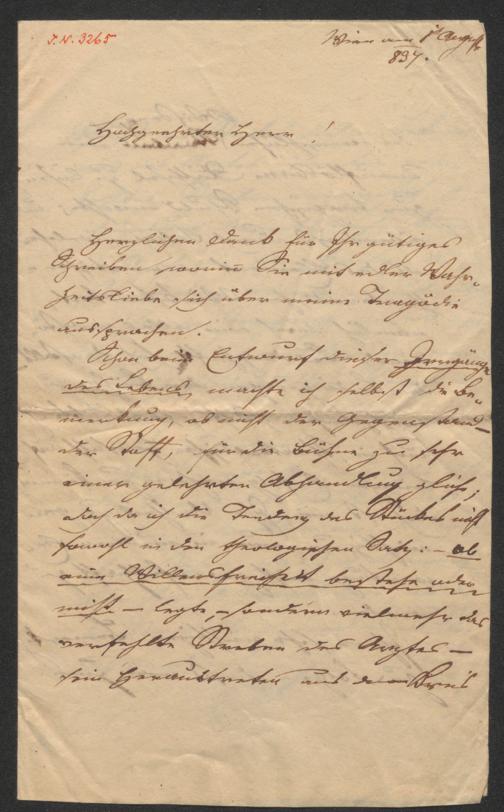 I.N. 3265
Wien am 1t August
837.
Hochgeehrter Herr!
Herzlichen Dank für Ihr gütiges
Schreiben, worin Sie mit edler Wahr-
heitsliebe sich über meine Tragödie
aussprachen.
Schon beim Entwurf dieser Irrgänge
des Lebens machte ich selbst die Be-
merkung, ob nicht der Gegenstand
der Stoff, für die Bühne zu sehr
einer gelehrten Abhandlung gliche;
doch da ich die Tendenz des Stückes nicht
sowohl in den theologischen Satz: – ob
eine Willensfreiheit bestehe oder
nicht – legte, – sondern vielmehr das
verfehlte Streben des Arztes –
sein Heraustreten aus dem Kreis